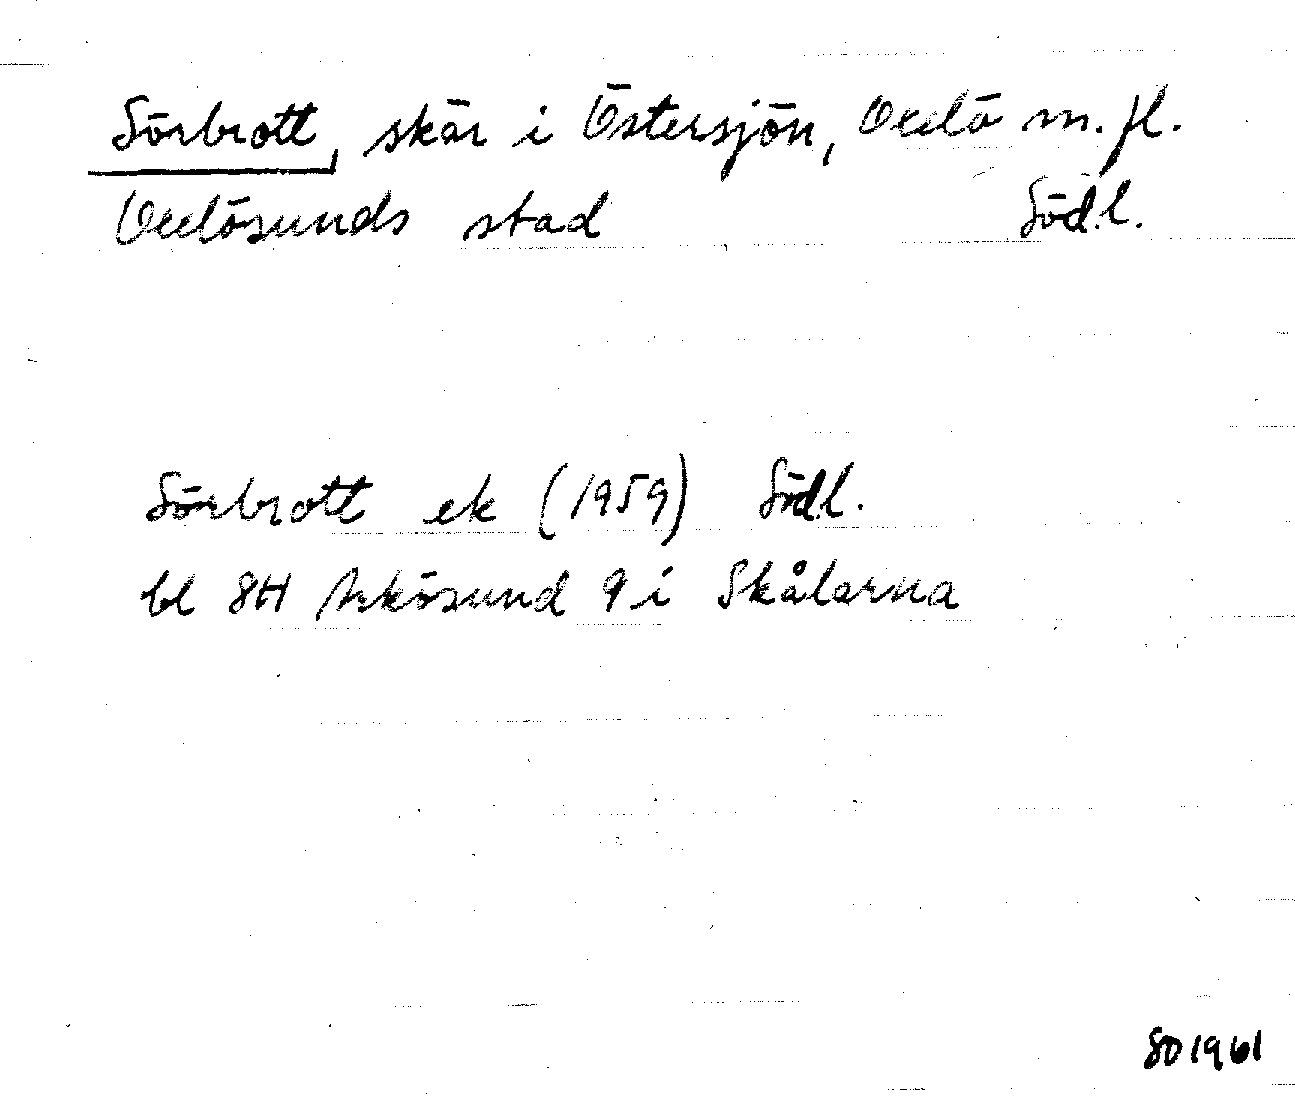 Sörbrott, skär i Östersjön, Oxelö m. fl.
Oxelösunds stad Södl.
Sörbrott ek (1959) Södl.
bl 8H Arkösund 9 i Skålarna
SD 1961